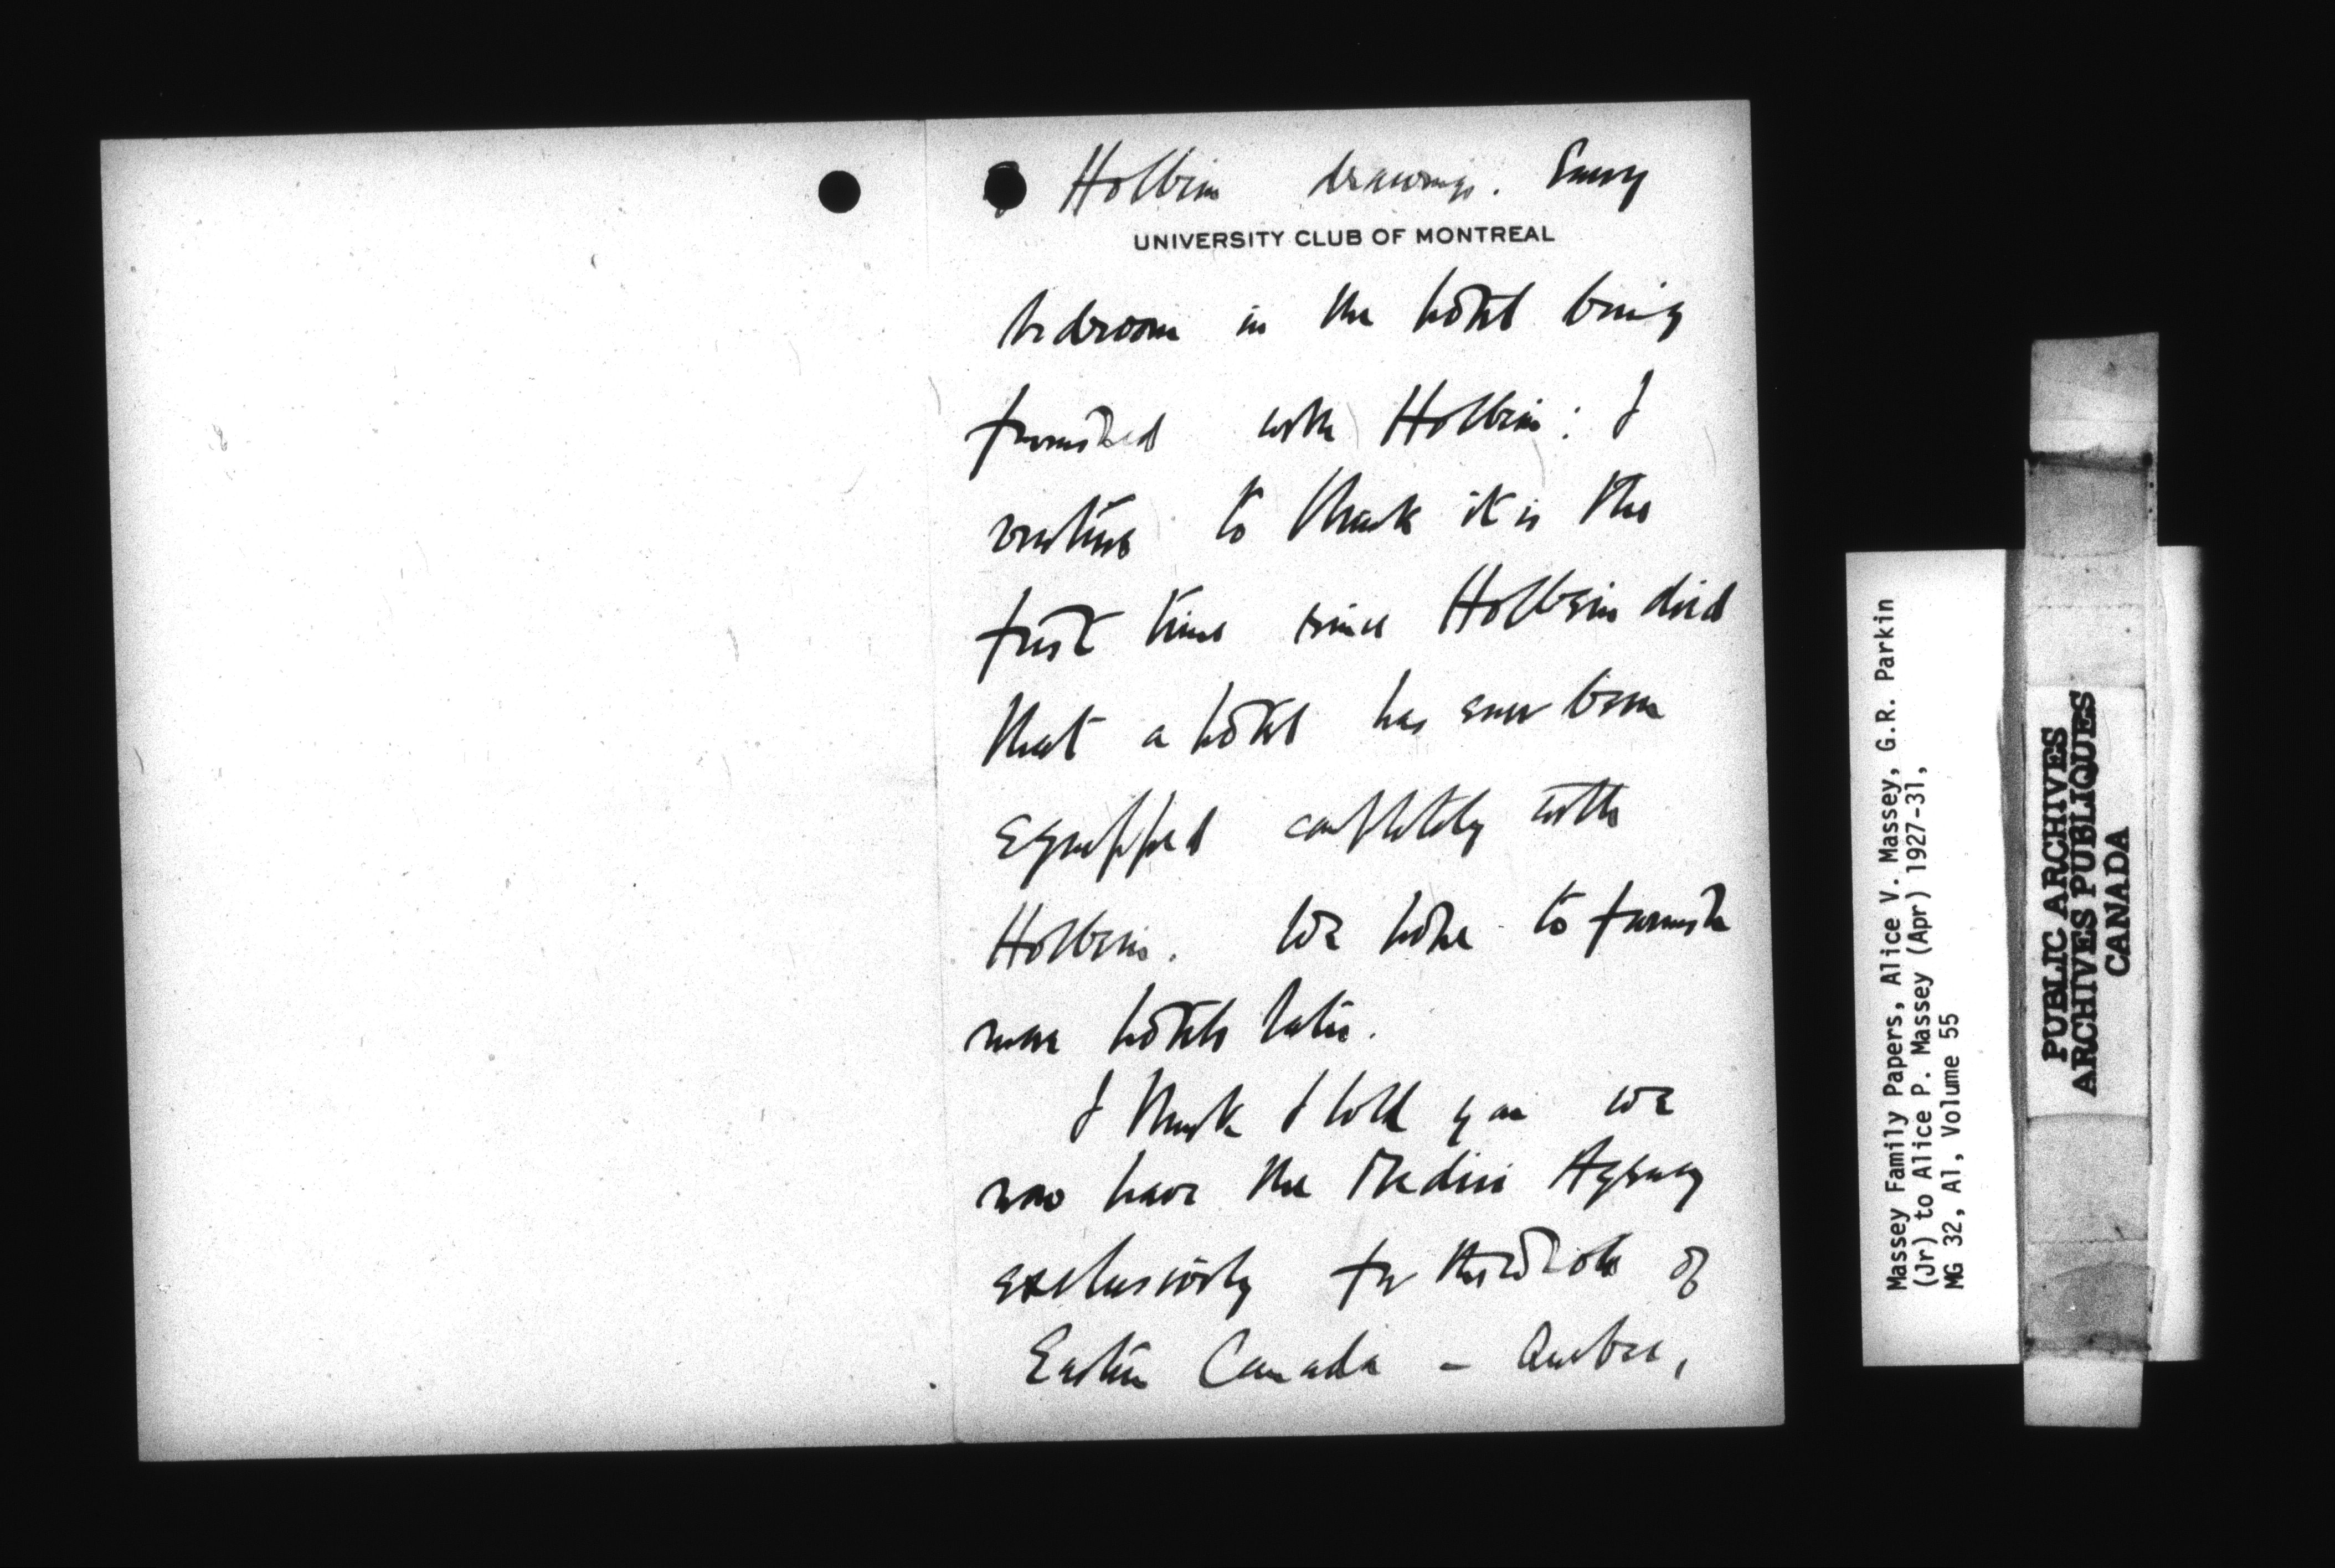 Holbein drawings. Every
UNIVERSITY CLUB OF MONTREAL
bedroom in the hotel being
furnished with Holbein: I
venture to think it is the
first time since Holbein died
that a hotel has ever been
equipped completely with
Holbein. We hope to furnish
more hotels later.
I think I told you we
now have the Medici Agency
exclusively for the whole of
Eastern Canada – Quebec,
Massey Family Papers, Alice V. Massey, G.R. Parkin
(Jr) to Alice P. Massey (Apr) 1927-31,
MG 32, A1, Volume 55
PUBLIC ARCHIVES
ARCHIVES PUBLIQUES
CANADA